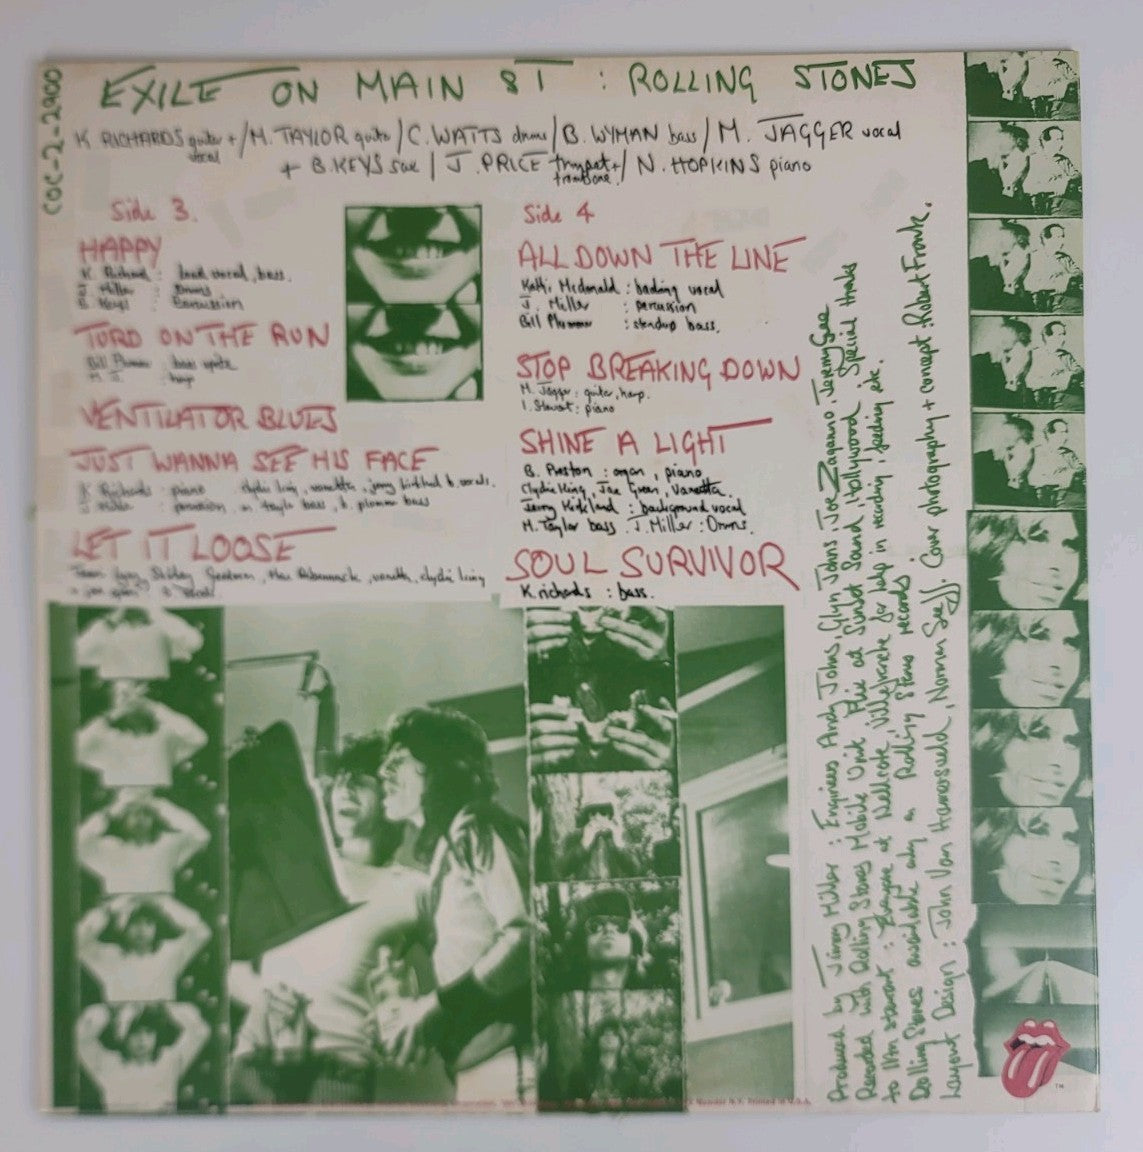 COC-2-2900
EXILE ON MAIN ST : ROLLING STONES
K RICHARDS guitar + vocal / M. TAYLOR guitar / C. WATTS drums / B. WYMAN bass / M. JAGGER vocal
+ B. KEYS sax / J. PRICE trumpet + trombone / N. HOPKINS piano
Side 3.
HAPPY
K Richard : lead vocal, bass.
J. Miller : Drums
B. Keys : Percussion
TURD ON THE RUN
Bill Plummer : bass
M J : harp
VENTILATOR BLUES
JUST WANNA SEE HIS FACE
K Richards : piano clydie king, vanetta, jerry kirkland b. vocals.
J Miller : percussion, m taylor bass, b. plummer bass
LET IT LOOSE
Tami Lynn, Shirley Goodman, Mac Rebennack, vanetta, clydie king
Side 4
ALL DOWN THE LINE
Kathi Mcdonald : backing vocal
J. Miller : percussion
Bill Plummer : standup bass.
STOP BREAKING DOWN
M. Jagger : guitar, harp.
I. Stewart : piano
SHINE A LIGHT
B. Preston : organ, piano
Clydie King, Joe Green, Vanetta
Jerry Kirkland : background vocal
M. Taylor bass J. Miller : Drums.
SOUL SURVIVOR
K richards : bass.
Produced by Jimmy Miller : Engineers Andy Johns, Glyn Johns Joe Zaganno Jeremy Gee
Recorded with Rolling Stones Mobile Unit Also at Sunset Sound, Hollywood Special thanks
to Ian stewart : Everyone at Nellcote, Villefranche for help in recording, feeding etc.
Rolling Stones available only on Rolling Stones records
Layout Design : John Van Hamersveld, Norman Seeff. Cover photography + concept : Robert Frank.
TM
Printed in U.S.A.